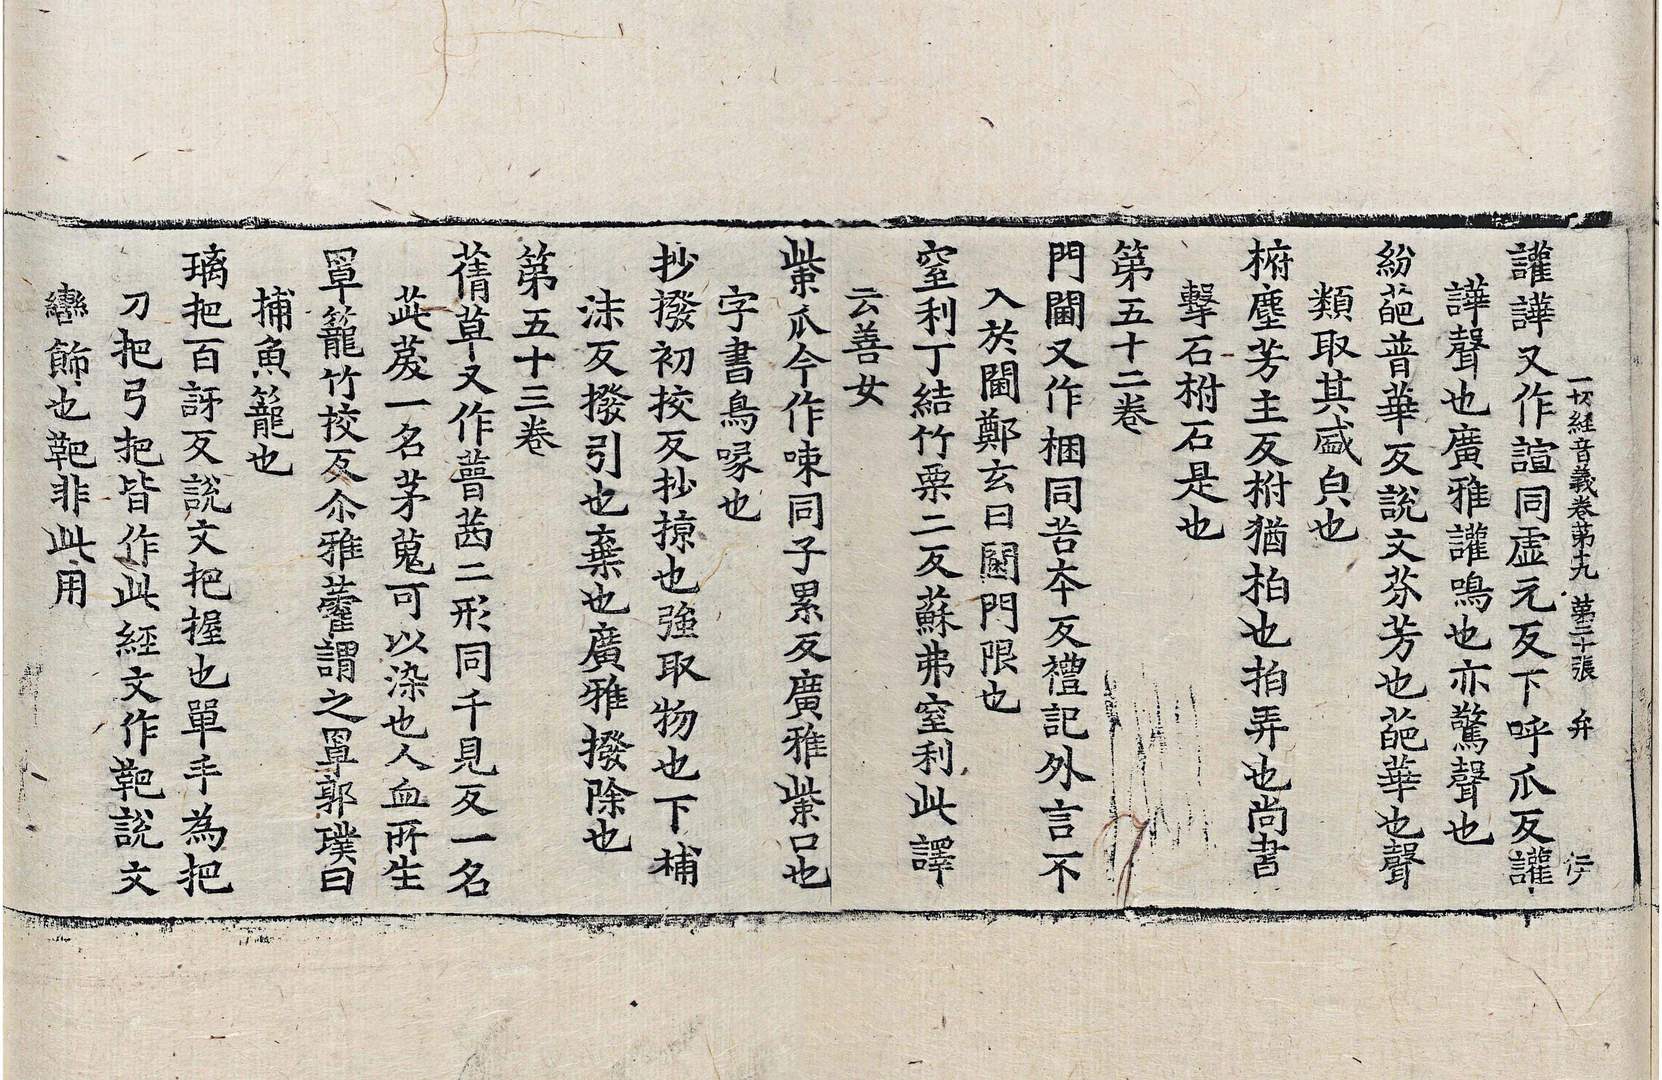 一切経音義卷第十九　苐三十張　弁
讙譁又作諠同虛元反下呼爪反讙
譁聲也廣雅讙鳴也亦驚聲也
紛葩普華反說文芬芳也葩華也聲
類取其盛皃也
椨塵芳主反柎猶拍也拍弄也尚書
擊石柎石是也
第五十二卷
門閫又作梱同苦夲反禮記外言不
入於閫鄭玄曰閫門限也
窒利丁結竹栗二反蘇弗窒利此譯
云善女
㭰爪今作㖩同子累反廣雅㭰口也
字書鳥喙也
抄撥初挍反抄掠也強取物也下補
沫反撥引也棄也廣雅撥除也
第五十三卷
蒨草又作蒨茜二形同千見反一名
茈䒹一名茅蒐可以染也人血所生
罩籠竹挍反尒雅藿謂之罩郭璞曰
捕魚籠也
璃把百訝反說文把握也單手為把
刀把弓把皆作此經文作靶說文
轡飾也靶非此用